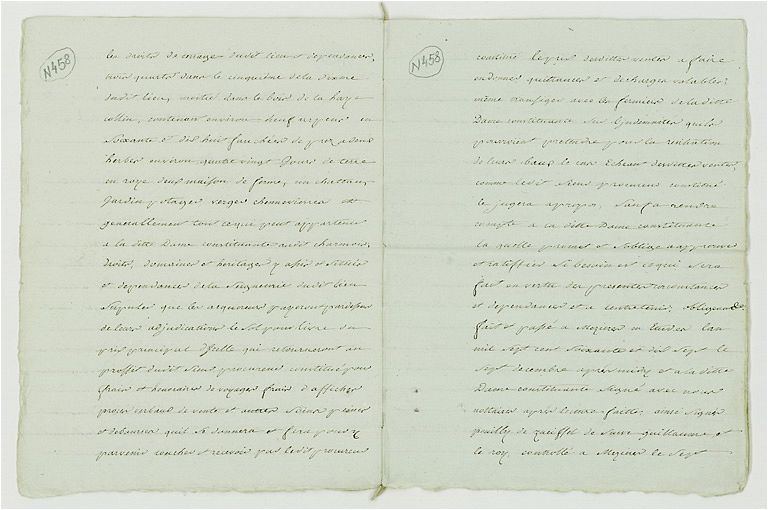 N458
les droits de terrage dudit lieu et dependances,
trois quarts dans le cinquieme de la dixme
dudit lieu, moitié dans le bois de la haye
collin, contenant environ neuf arpens en
Soixante et dix huit fauchées de prez a deux
herbes environ quatre vingt Jours de terre
en raye deux maison de ferme, un chateau,
Jardin potager verger chenneviere et
generallement tout ce que peut appartenir
a la ditte Dame constituante audit
droits, domaines et heritages y assis et
et dependances de la Seigneurie dudit lieu
Stipuler que les acquereurs payeront pardessus
de leurs adjudications le Sol pour livre du
prix principal d'Icelle qui retourneront au
proffit dudit Sieur procureur constitué pour
frais et honoraires de voyages frais d'affiches
proces verbaux de vente et autres
et debourses qu'il Se donnera et fera pour y
parvenir toucher et recevoir par ledit procureur
N458
constitué le prix desdittes ventes a faire
en donner quittances et decharges valables,
même transiger avec les fermiers de la ditte
Dame constituante Sur lindemnité quils
pourroient pretendre pour la resiliation
de leurs baux le cas Echeant desdittes ventes,
comme ledit Sieur procureur constitué
le jugera apropos, Sauf a rendre
compte a la ditte Dame constituante
la quelle promet et Soblige approuver
et ratiffier Si besoin est ce qui Sera
fait en vertu des presentes circonstances
et dependances et a lentretenir, obligeant &c.
fait et passé a Mezieres en letude lan
mil Sept cent Soixante et dix Sept le
Sept decembre apres midy et a la ditte
Dame constituante Signé avec nous
nottaires apres lecture faitte, ainsi Signés
pouilly de
le roy, controllé a Mezieres le Sept